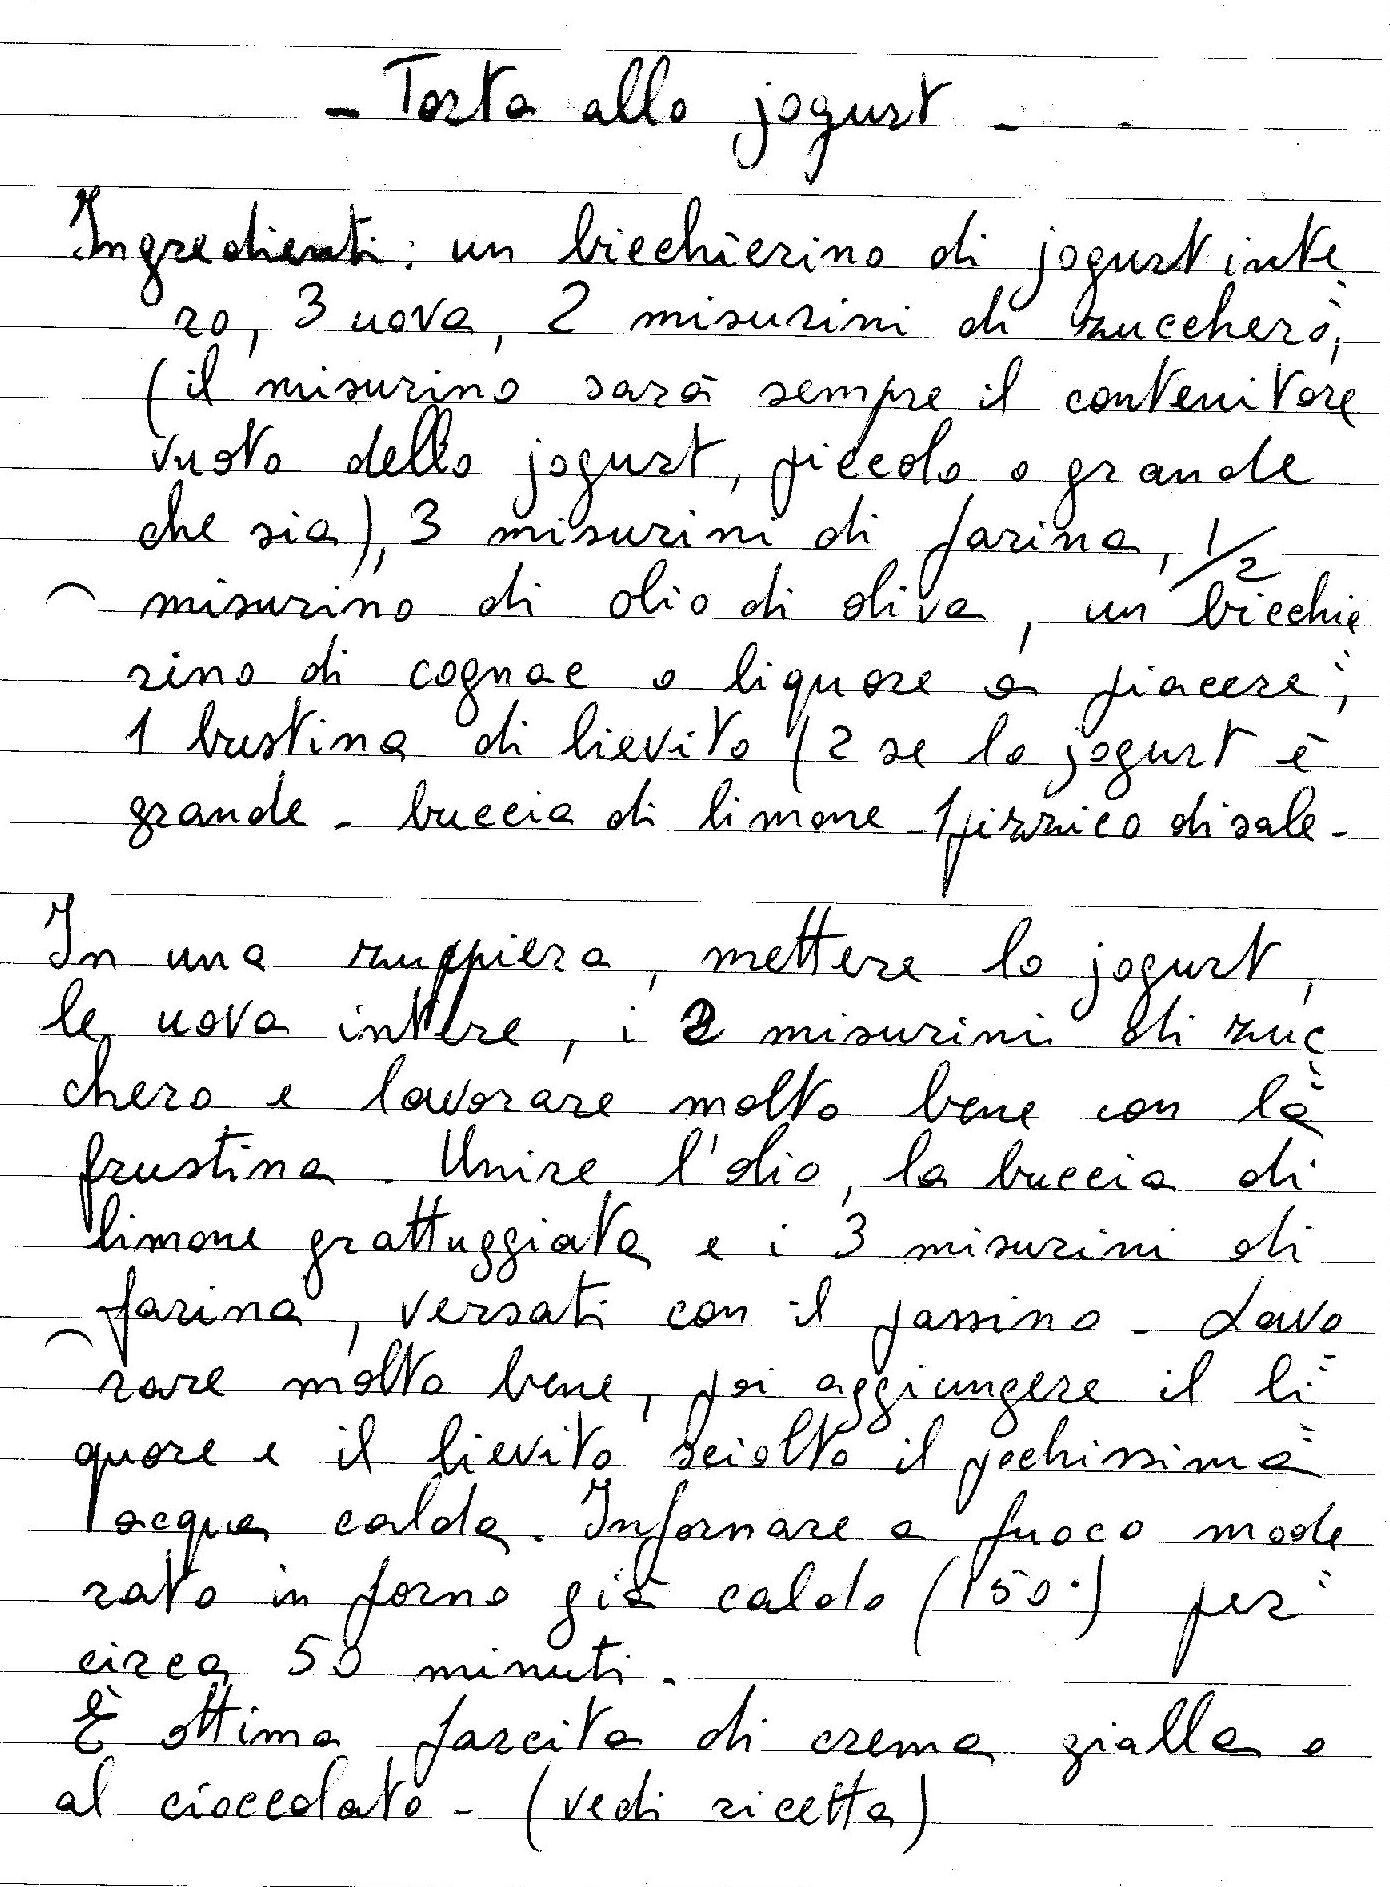 - Torta allo jogurt -
Ingredienti: un bicchierino di jogurt inte
ro, 3 uova, 2 misurini di zucchero,
(il misurino sarà sempre il contenitore
vuoto dello jogurt, piccolo o grande
che sia), 3 misurini di farina, 1/2
misurino di olio di oliva, un bicchie
rino di cognac o liquore a piacere,
1 bustina di lievito (2 se lo jogurt è
grande - buccia di limone - 1 pizzico di sale -
In una zuppiera, mettere lo jogurt,
le uova intere, i 2 misurini di zuc
chero e lavorare molto bene con la
frustina. Unire l'olio, la buccia di
limone grattuggiata e i 3 misurini di
farina, versati con il passino - Lavo
rare molto bene, poi aggiungere il li
quore e il lievito sciolto il pochissima
acqua calda. Infornare a fuoco mode
rato in forno già caldo (150°) per
circa 50 minuti.
È ottima farcita di crema gialla o
al cioccolato - (vedi ricetta)